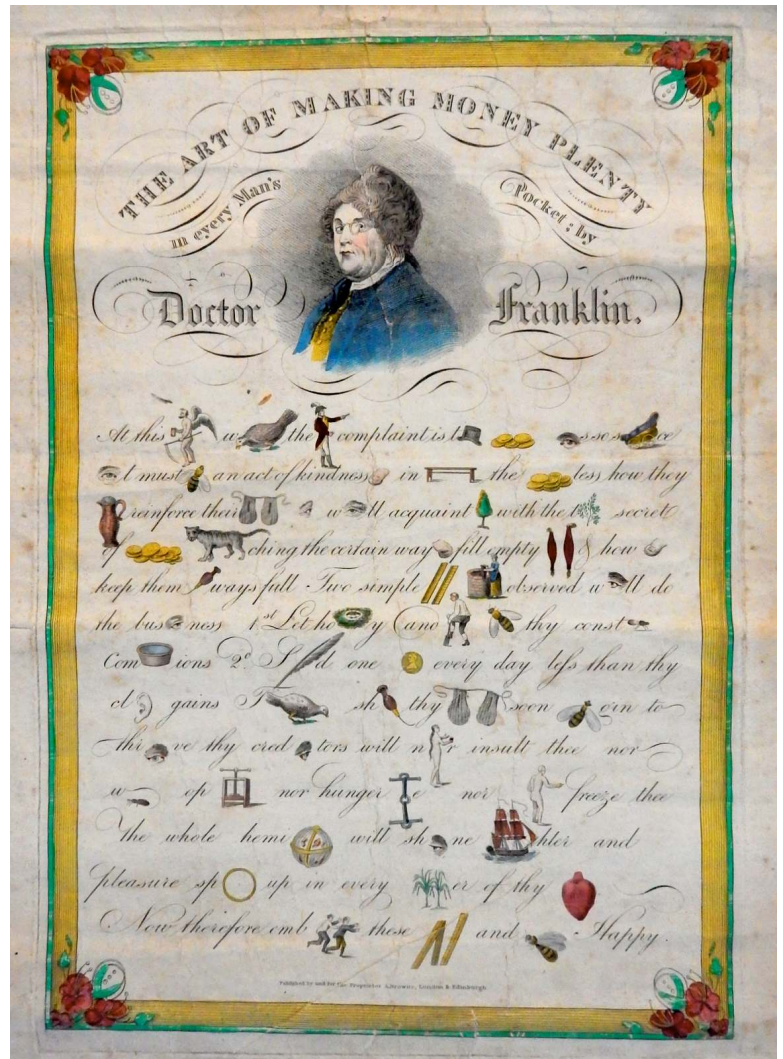 THE ART OF MAKING MONEY PLENTY
in every Man's Pocket: by
Doctor Franklin.
At this w the complaint is t s so s ce
t must an act of kindness in the less how they
reinforce their w ll acquaint with the t secret
of ching the certain way fill empty & how
keep them ways full Two simple observed w ll do
the bus ness 1st Let ho y (and thy const
Com ions 2d S d one every day less than thy
cl gains T sh thy soon gin to
thr ve thy cred tors will n r insult thee nor
w op nor hunger e nor freeze thee
The whole hemi will sh ne hter and
pleasure sp up in every er of thy
Now therefore emb these and Happy.
Published by and for the Proprietor London & Edinburgh